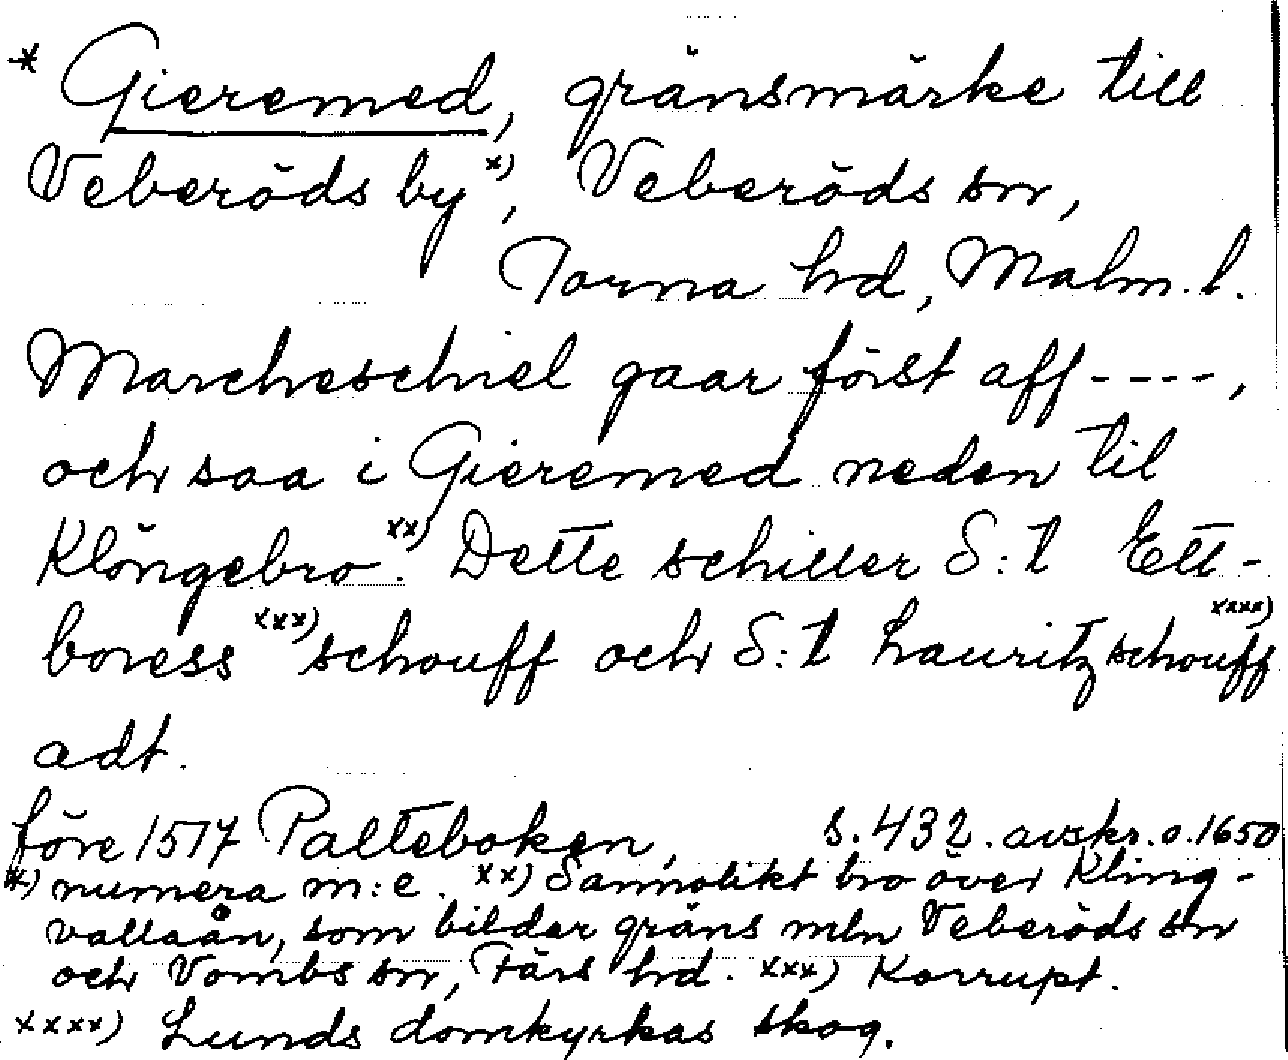 * Gieremed, gränsmärke till
Veberöds by x), Veberöds sn,
Torna hd, Malm. l.
Marcheschiel gaar först aff ----,
och saa i Gieremed neden til
Klöngebro. xx) Dette schiller S:t Ett-
boress xxx) schouff och S:t Lauritz schouff xxxx)
adt.
före 1517 Palteboken, s. 432. avskr. o. 1650
x) numera m:e. xx) Sannolikt bro över Kling-
vallaån, som bildar gräns mln Veberöds sn
och Vombs sn, Färs hd. xxx) Korrupt.
xxxx) Lunds domkyrkas skog.